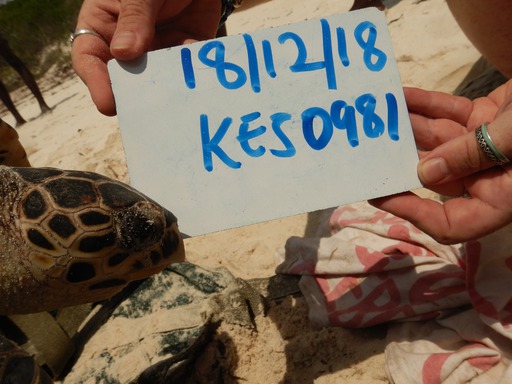 18/12/18
KES0981